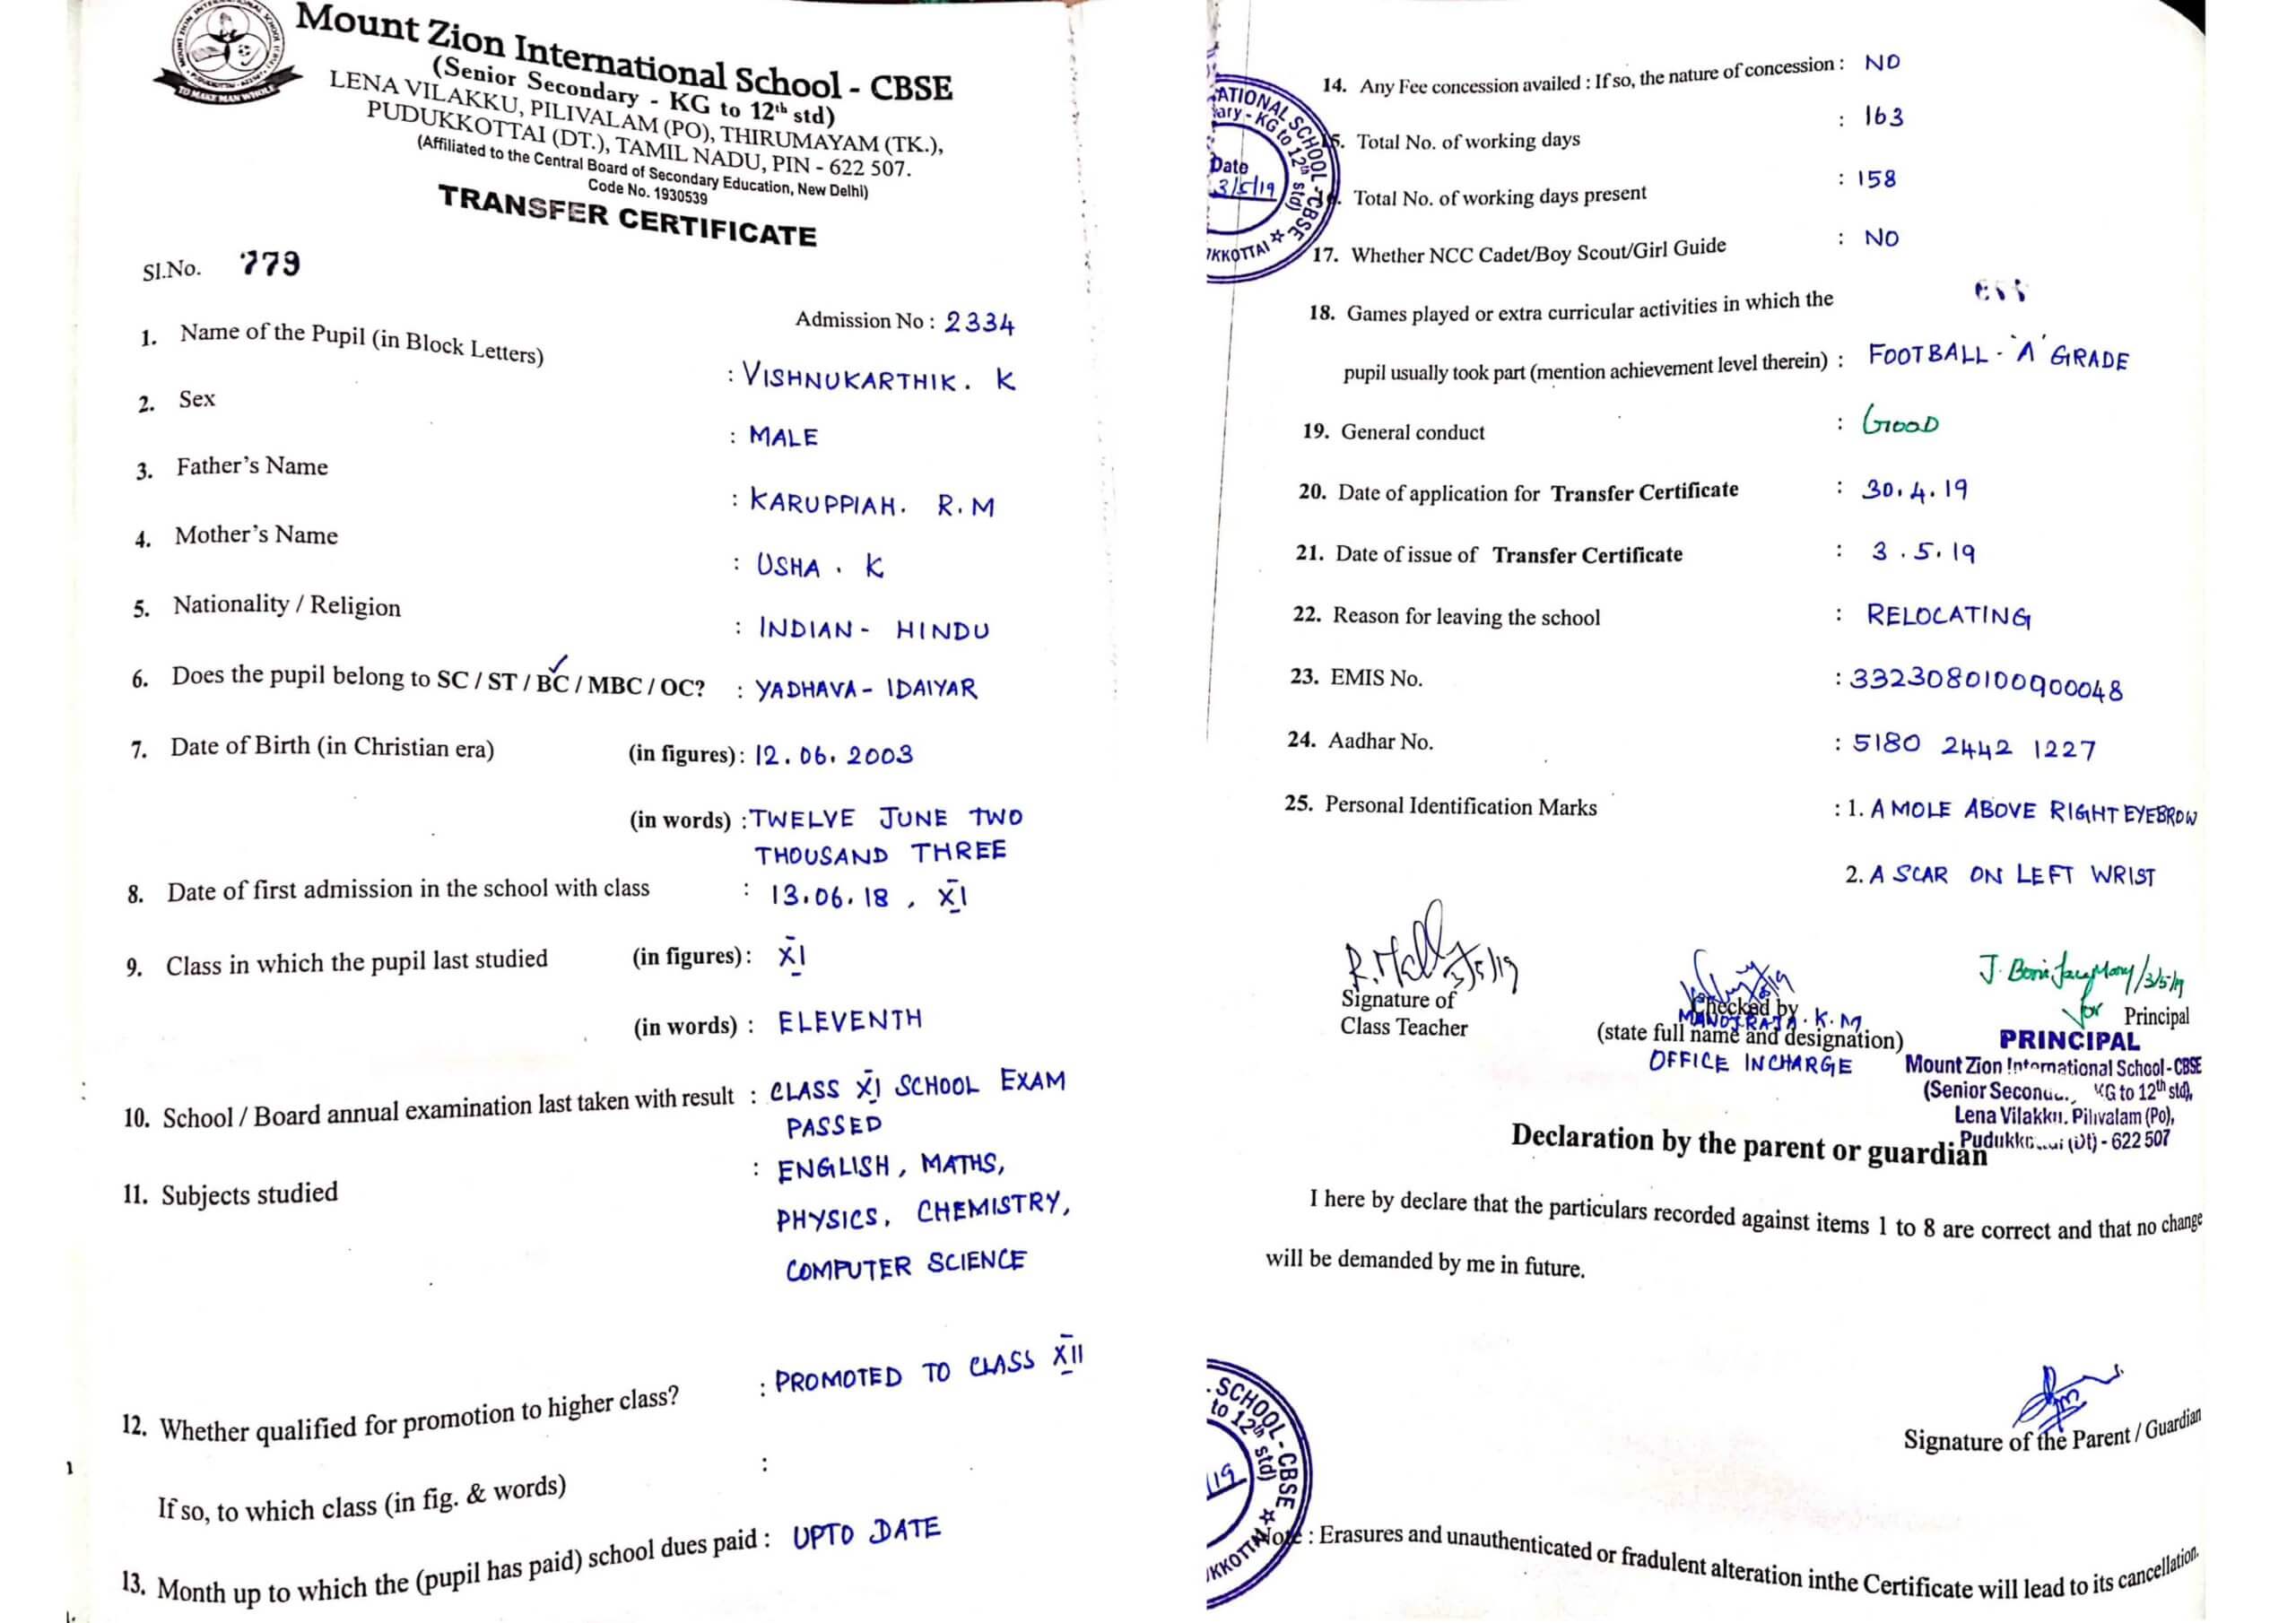 Mount Zion International School - CBSE
(Senior Secondary - KG to 12th std)
LENA VILAKKU, PILIVALAM (PO), THIRUMAYAM (TK.),
PUDUKKOTTAI (DT.), TAMIL NADU, PIN - 622 507.
(Affiliated to the Central Board of Secondary Education, New Delhi)
Code No. 1930539
TRANSFER CERTIFICATE
TO MAKE MAN WHOLE
Sl.No. 779
Admission No : 2334
1. Name of the Pupil (in Block Letters) : VISHNUKARTHIK. K
2. Sex : MALE
3. Father's Name : KARUPPIAH. R.M
4. Mother's Name : USHA. K
5. Nationality / Religion : INDIAN - HINDU
6. Does the pupil belong to SC / ST / BC / MBC / OC? : YADHAVA - IDAIYAR
7. Date of Birth (in Christian era) (in figures) : 12.06.2003
(in words) : TWELVE JUNE TWO
THOUSAND THREE
8. Date of first admission in the school with class : 13.06.18, XI
9. Class in which the pupil last studied (in figures) : XI
(in words) : ELEVENTH
10. School / Board annual examination last taken with result : CLASS XI SCHOOL EXAM
PASSED
11. Subjects studied : ENGLISH, MATHS,
PHYSICS, CHEMISTRY,
COMPUTER SCIENCE
12. Whether qualified for promotion to higher class? : PROMOTED TO CLASS XII
If so, to which class (in fig. & words) :
13. Month up to which the (pupil has paid) school dues paid : UPTO DATE
ATIONAL SCHOOL - CBSE
ary - KG to 12th std)
Date
3/5/19
KKOTTAI
14. Any Fee concession availed : If so, the nature of concession : NO
15. Total No. of working days : 163
Total No. of working days present : 158
17. Whether NCC Cadet/Boy Scout/Girl Guide : NO
18. Games played or extra curricular activities in which the
pupil usually took part (mention achievement level therein) : FOOTBALL - 'A' GRADE
19. General conduct : GOOD
20. Date of application for Transfer Certificate : 30.4.19
21. Date of issue of Transfer Certificate : 3.5.19
22. Reason for leaving the school : RELOCATING
23. EMIS No. : 3323080100900048
24. Aadhar No. : 5180 2442 1227
25. Personal Identification Marks : 1. A MOLE ABOVE RIGHT EYEBROW
2. A SCAR ON LEFT WRIST
3/5/19
Signature of
Class Teacher
Checked by
MANOJRAJA. K.M
(state full name and designation)
OFFICE INCHARGE
/3/5/19
for Principal
PRINCIPAL
Mount Zion International School - CBSE
(Senior KG to 12th std),
Lena Vilakku, Pilivalam (Po),
(Dt) - 622 507
Declaration by the parent or guardian
I here by declare that the particulars recorded against items 1 to 8 are correct and that no change
will be demanded by me in future.
Signature of the Parent / Guardian
SCHOOL - CBSE
to 12th std)
/19
KKOTTAI
Note : Erasures and unauthenticated or fradulent alteration inthe Certificate will lead to its cancellation.